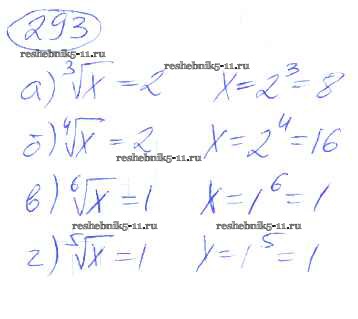 293
reshebnik5-11.ru
reshebnik5-11.ru
а) ³√x = 2 x = 2³ = 8
б) ⁴√x = 2 x = 2⁴ = 16
reshebnik5-11.ru
в) ⁶√x = 1 x = 1⁶ = 1
reshebnik5-11.ru
г) ⁵√x = 1 x = 1⁵ = 1
reshebnik5-11.ru